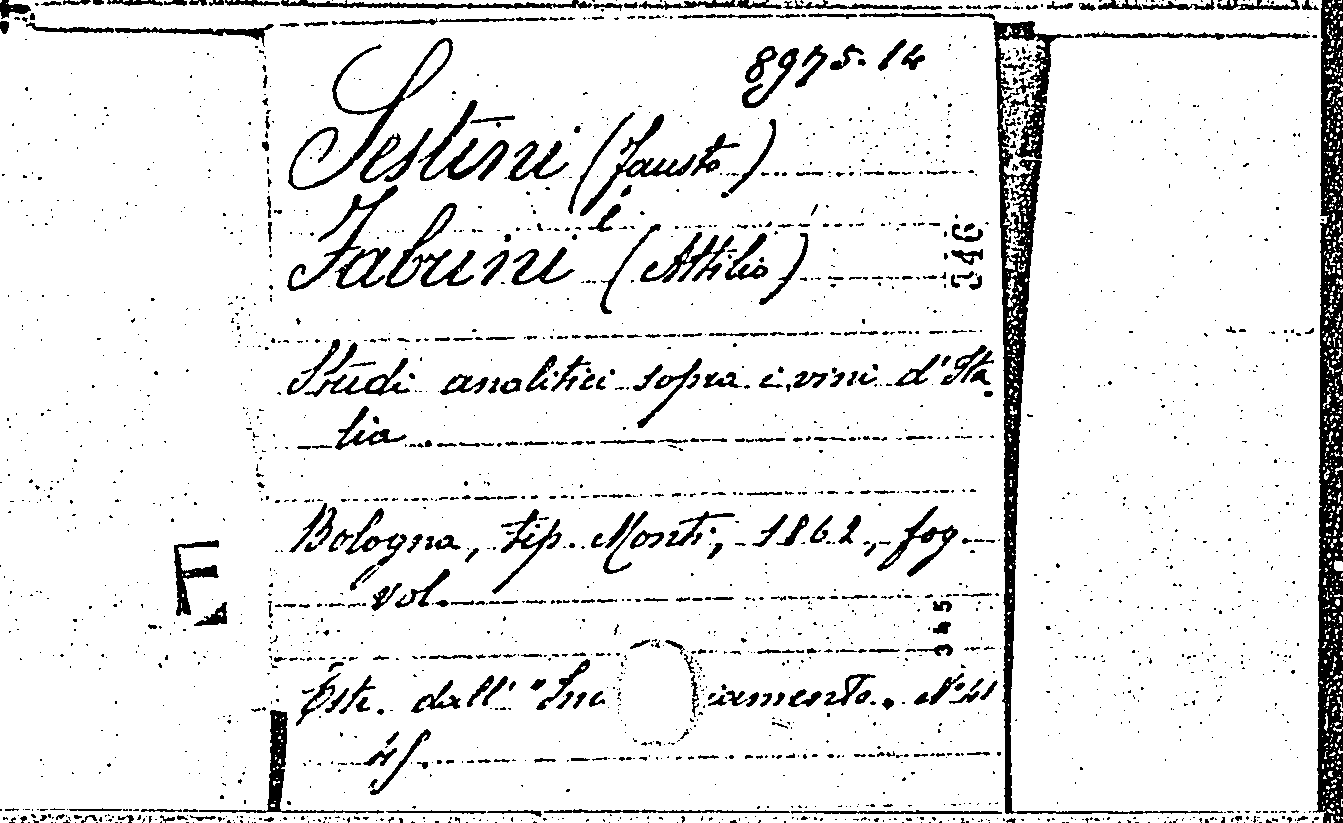 8975.14
Sestini (Fausto)
e
Fabrini (Attilio)
346
Studi analitici sopra i vini d'Ita
lia.
Bologna, tip. Monti, 1862, fog.
vol.
345
Estr. dall' "Inc iamento. N. 41
E